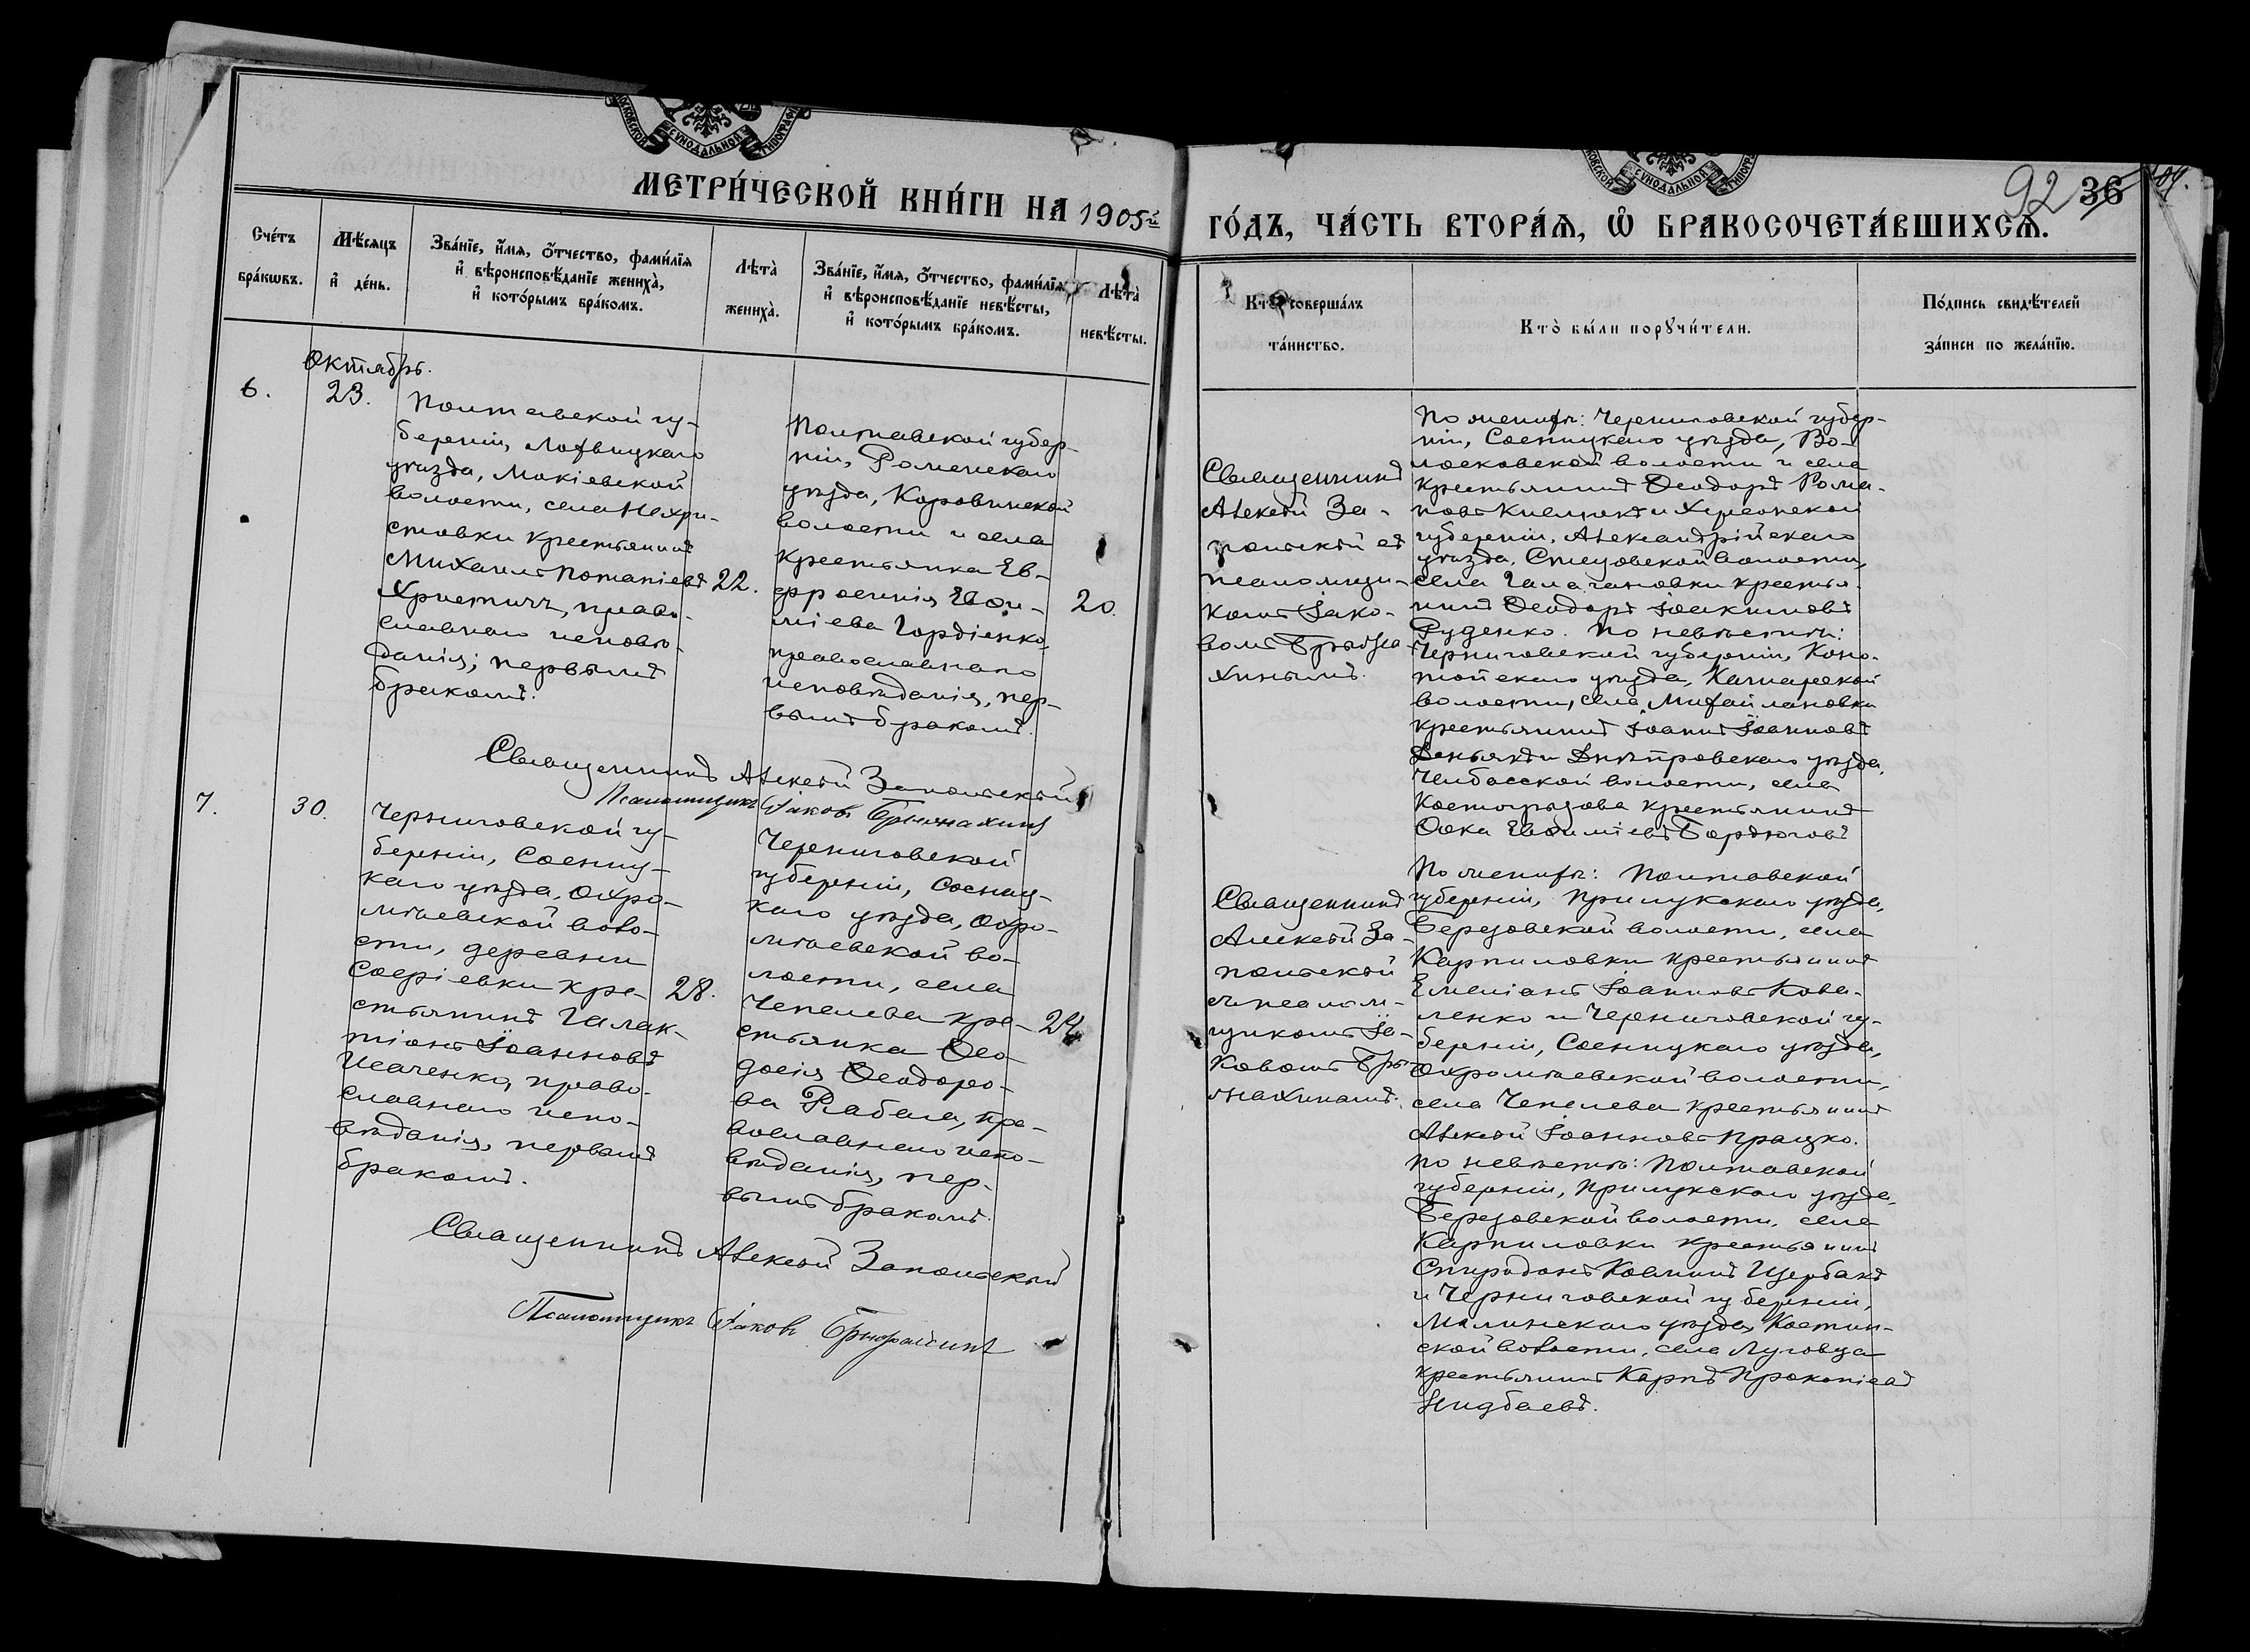 МОСКОВСКОЙ СѴНОДАЛЬНОЙ ТИПОГРАФ
МЕТРИ́ЧЕСКОЙ КНИ́ГИ НА 1905й
Сче́тъ бра́кωвъ.
Мѣ́сяцъ и҆ де́нь.
Зва́нїе, и҆́мя, ѻ҆́тчество, фами́лїя
и҆ вѣроисповѣ́данїе жениха̀,
и҆ кото́рымъ бра́комъ.
Лѣта̀ жениха̀.
Зва́нїе, и҆́мя, ѻ҆́тчество, фами́лїя
и҆ вѣроисповѣ́данїе невѣ́сты,
и҆ кото́рымъ бра́комъ.
Лѣта̀ невѣ́сты.
Октябрь.
6.
23.
Полтавской гу-
берніи, Лохвицкаго
уѣзда, Мокіевской
волости, села Нехри-
стовки крестьянинъ
Михаилъ Потапіевъ
Христичъ, право-
славнаго исповѣ-
данія; первымъ
бракомъ.
22.
Полтавской губер-
ніи, Роменскаго
уѣзда, Коровинской
волости и села
крестьянка Ев-
фросинія Евѳи-
міева Гордіенко,
православнаго
исповѣданія, пер-
вымъ бракомъ.
20.
Священникъ Алексѣй Запольскій
Псаломщикъ Іаковъ
7.
30.
Черниговской гу-
берніи, Сосниц-
каго уѣзда, Охро-
мѣевской воло-
сти, деревни
Софіевки кре-
стьянинъ Галак-
тіонъ Іоанновъ
Исаченко, право-
славнаго испо-
вѣданія, первымъ
бракомъ.
28.
Черниговской
губерніи, Сосниц-
каго уѣзда, Охро-
мѣевской во-
лости, села
Чепелева кре-
стьянка Ѳео-
досія Ѳеодоро-
ва Рабала, пра-
вославнаго испо-
вѣданія, пер-
вымъ бракомъ.
24
Священникъ Алексѣй Запольскій
Псаломщикъ Іаковъ
МОСКОВСКОЙ СѴНОДАЛЬНОЙ ТИПОГРА
92 36
ГО́ДЪ, ЧА́СТЬ ВТОРА́Я, Ѽ БРАКОСОЧЕТА́ВШИХСЯ.
Кто̀ соверша́лъ
та́инство.
Кто̀ бы́ли порꙋчи́тели.
По́дпись свидѣ́телей
за́писи по жела́нїю.
Священникъ
Алексѣй За-
польскій съ
псаломщи-
комъ Іако-
вомъ
хинымъ.
По женихѣ: Черниговской губер-
ніи, Сосницкаго уѣзда, Во-
лосковской волости и села
крестьянинъ Ѳеодоръ Рома-
новъ и Херсонской
губерніи, Александрійскаго
уѣзда, волости,
села крестья-
нинъ Ѳеодоръ Іоакимовъ
Руденко. По невѣстѣ:
Черниговской губерніи, Коно-
топскаго уѣзда,
волости, села Михайловки
крестьянинъ Іоаннъ Іоанновъ
и Днѣпровскаго уѣзда,
Чалбасской волости, села
Костогрызова крестьянинъ
Ѳока Евѳиміевъ Бордюговъ
Священникъ
Алексѣй За-
польскій
съ псалом-
щикомъ Іа-
ковомъ
По женихѣ: Полтавской
губерніи, Прилукскаго уѣзда,
Березовской волости, села
Карпиловки крестьянинъ
Емеліанъ Іоанновъ Кова-
ленко и Черниговской гу-
берніи, Сосницкаго уѣзда,
Охромѣевской волости,
села Чепелева крестьянинъ
Алексѣй Іоанновъ Працко.
По невѣстѣ: Полтавской
губерніи, Прилукскаго уѣзда,
Березовской волости, села
Карпиловки крестьянинъ
Спиридонъ Косминъ Щербакъ
и Черниговской губерніи,
Мглинскаго уѣзда, Костин-
ской волости, села Луговца
крестьянинъ Карпъ Прокопіевъ